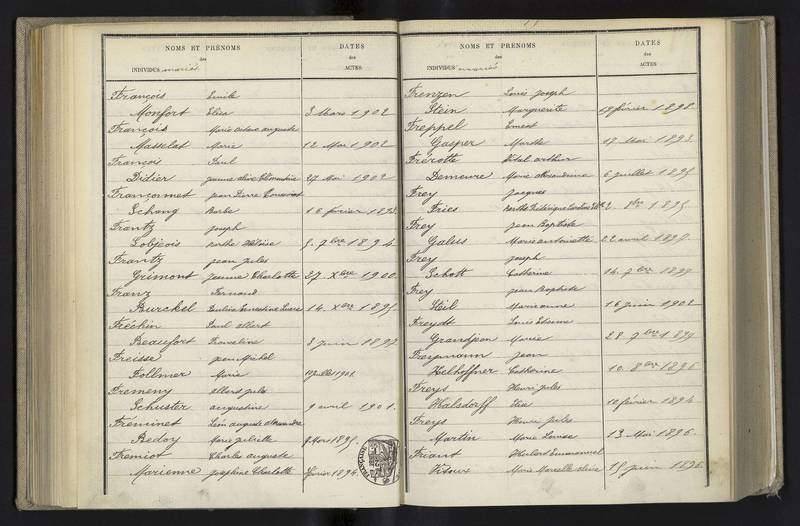 NOMS ET PRÉNOMS DATES
des des
INDIVIDUS mariés ACTES
François Emile
Monfort Elisa 3 Mars 1902
François Marie octave auguste
Masselat Marie 12 Mars 1902
François Paul
Didier jeanne alice 27 Mai 1902
Françonnet jean Pierre
Schang Barbe 16 février
Frantz joseph
Lobjeois Héloïse 5. 7bre 1894
Frantz jean jules
Grimont Jeanne Charlotte 27. Xbre 1900.
Franz Fernand
Burckel Ernestine 14. Xbre 1895
Fréchin Paul albert
Beaufort 3 juin 1897
Freisse jean Michel
Follmer Marie juillet 1902
Fremeny albert jules
Schuster augustine 9 avril 1901.
Fréminet Léon auguste
Bedoy Marie 9 Mars 1895.
Fremiot Charles auguste
Marienne joséphine Charlotte février 1894.
NOMS ET PRÉNOMS DATES
des des
INDIVIDUS mariés ACTES
Frenzen Louis Joseph
Stein Marguerite février 1898
Freppel Ernest
Gasper Marthe Mai 1893.
Frérotte Vital arthur
Demeure Marie alexandrine 6 juillet 1895
Frey Jacques
Fries Berthe 8bre 1895
Frey jean Baptiste
Galus Marie antoinette 22 avril 1897.
Frey joseph
Schott Catherine 14. 7bre 1899
Frey jean Baptiste
Steil Marianne 16 juin 1902
Freydt Louis Etienne
Grandjean Marie 28. 7bre
Freymann jean
Helhoffner Catherine 10. 8bre 1896
Freys Henri jules
Walsdorff Elisa 10 février 1894
Freys Henri jules
Martin Marie Louise 13 Mai 1896.
Friant Hubert Emmanuel
Visoux Marie Marcelle 15 juin 1896